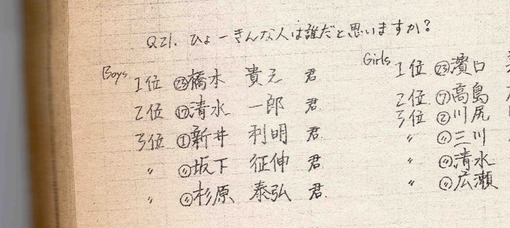 Q21. ひょーきんな人は誰だと思いますか?
Boys
1位 ㉓橋本 貴元 君
2位 ⑰清水 一郎 君
3位 ①新井 利明 君
〃 〃坂下 征伸 君
〃 〃杉原 泰弘 君
Girls
1位 ㉓濱口
2位 ⑦高島
3位 ②川尻
〃 〃三川
〃 〃清水
〃 〃広瀬